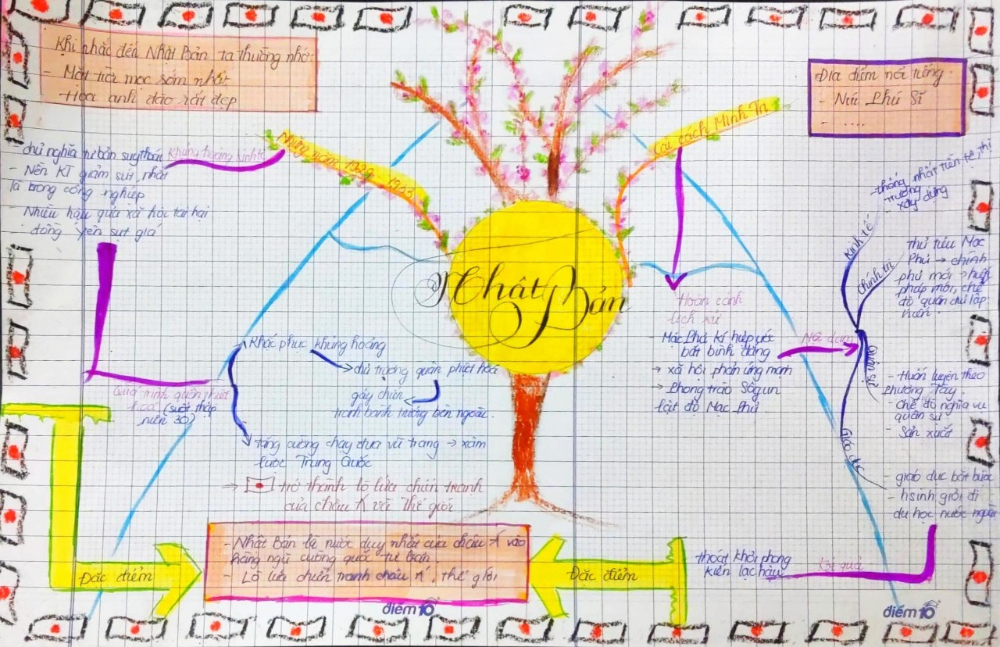 Khi nhắc đến Nhật Bản ta thường nhớ:
- Mặt trời mọc sớm nhất
- Hoa anh đào rất đẹp
Địa điểm nổi tiếng:
- Núi Phú Sĩ
- .....
Nhật Bản
Những năm 1929 - 1933
Khủng hoảng kinh tế
chủ nghĩa tư bản suy thoái
- Nền KT giảm sút, nhất
là trong công nghiệp
- Nhiều hậu quả xã hội tai hại
- đồng yên sụt giá
Quá trình quân phiệt
hoá (suốt thập
niên 30)
Khắc phục khủng hoảng
chủ trương quân phiệt hoá
gây chiến
tranh bành trướng bên ngoài.
tăng cường chạy đua vũ trang → xâm
lược Trung Quốc
→ trở thành lò lửa chiến tranh
của châu Á và thế giới
Cải cách Minh Trị
Hoàn cảnh
lịch sử
Mạc Phủ kí hiệp ước
bất bình đẳng
→ xã hội phản ứng mạnh
→ Phong trào Sôgun
lật đổ Mạc Phủ
Nội dung
Kinh tế
- thống nhất tiền tệ, thị
trường
- xây dựng
Chính trị
thủ tiêu Mạc
Phủ → chính
phủ mới → hiến
pháp mới, chế
độ quân chủ lập
hiến.
Quân sự
- Huấn luyện theo
phương Tây
- Chế độ nghĩa vụ
quân sự
- Sản xuất
Giáo dục
- giáo dục bắt buộc
- hsinh giỏi đi
du học nước ngoài
Kết quả
thoát khỏi phong
kiến lạc hậu
Đặc điểm
- Nhật Bản là nước duy nhất của châu Á vào
hàng ngũ cường quốc tư bản
- Lò lửa chiến tranh châu Á, thế giới
Đặc điểm
điểm 10
điểm 10